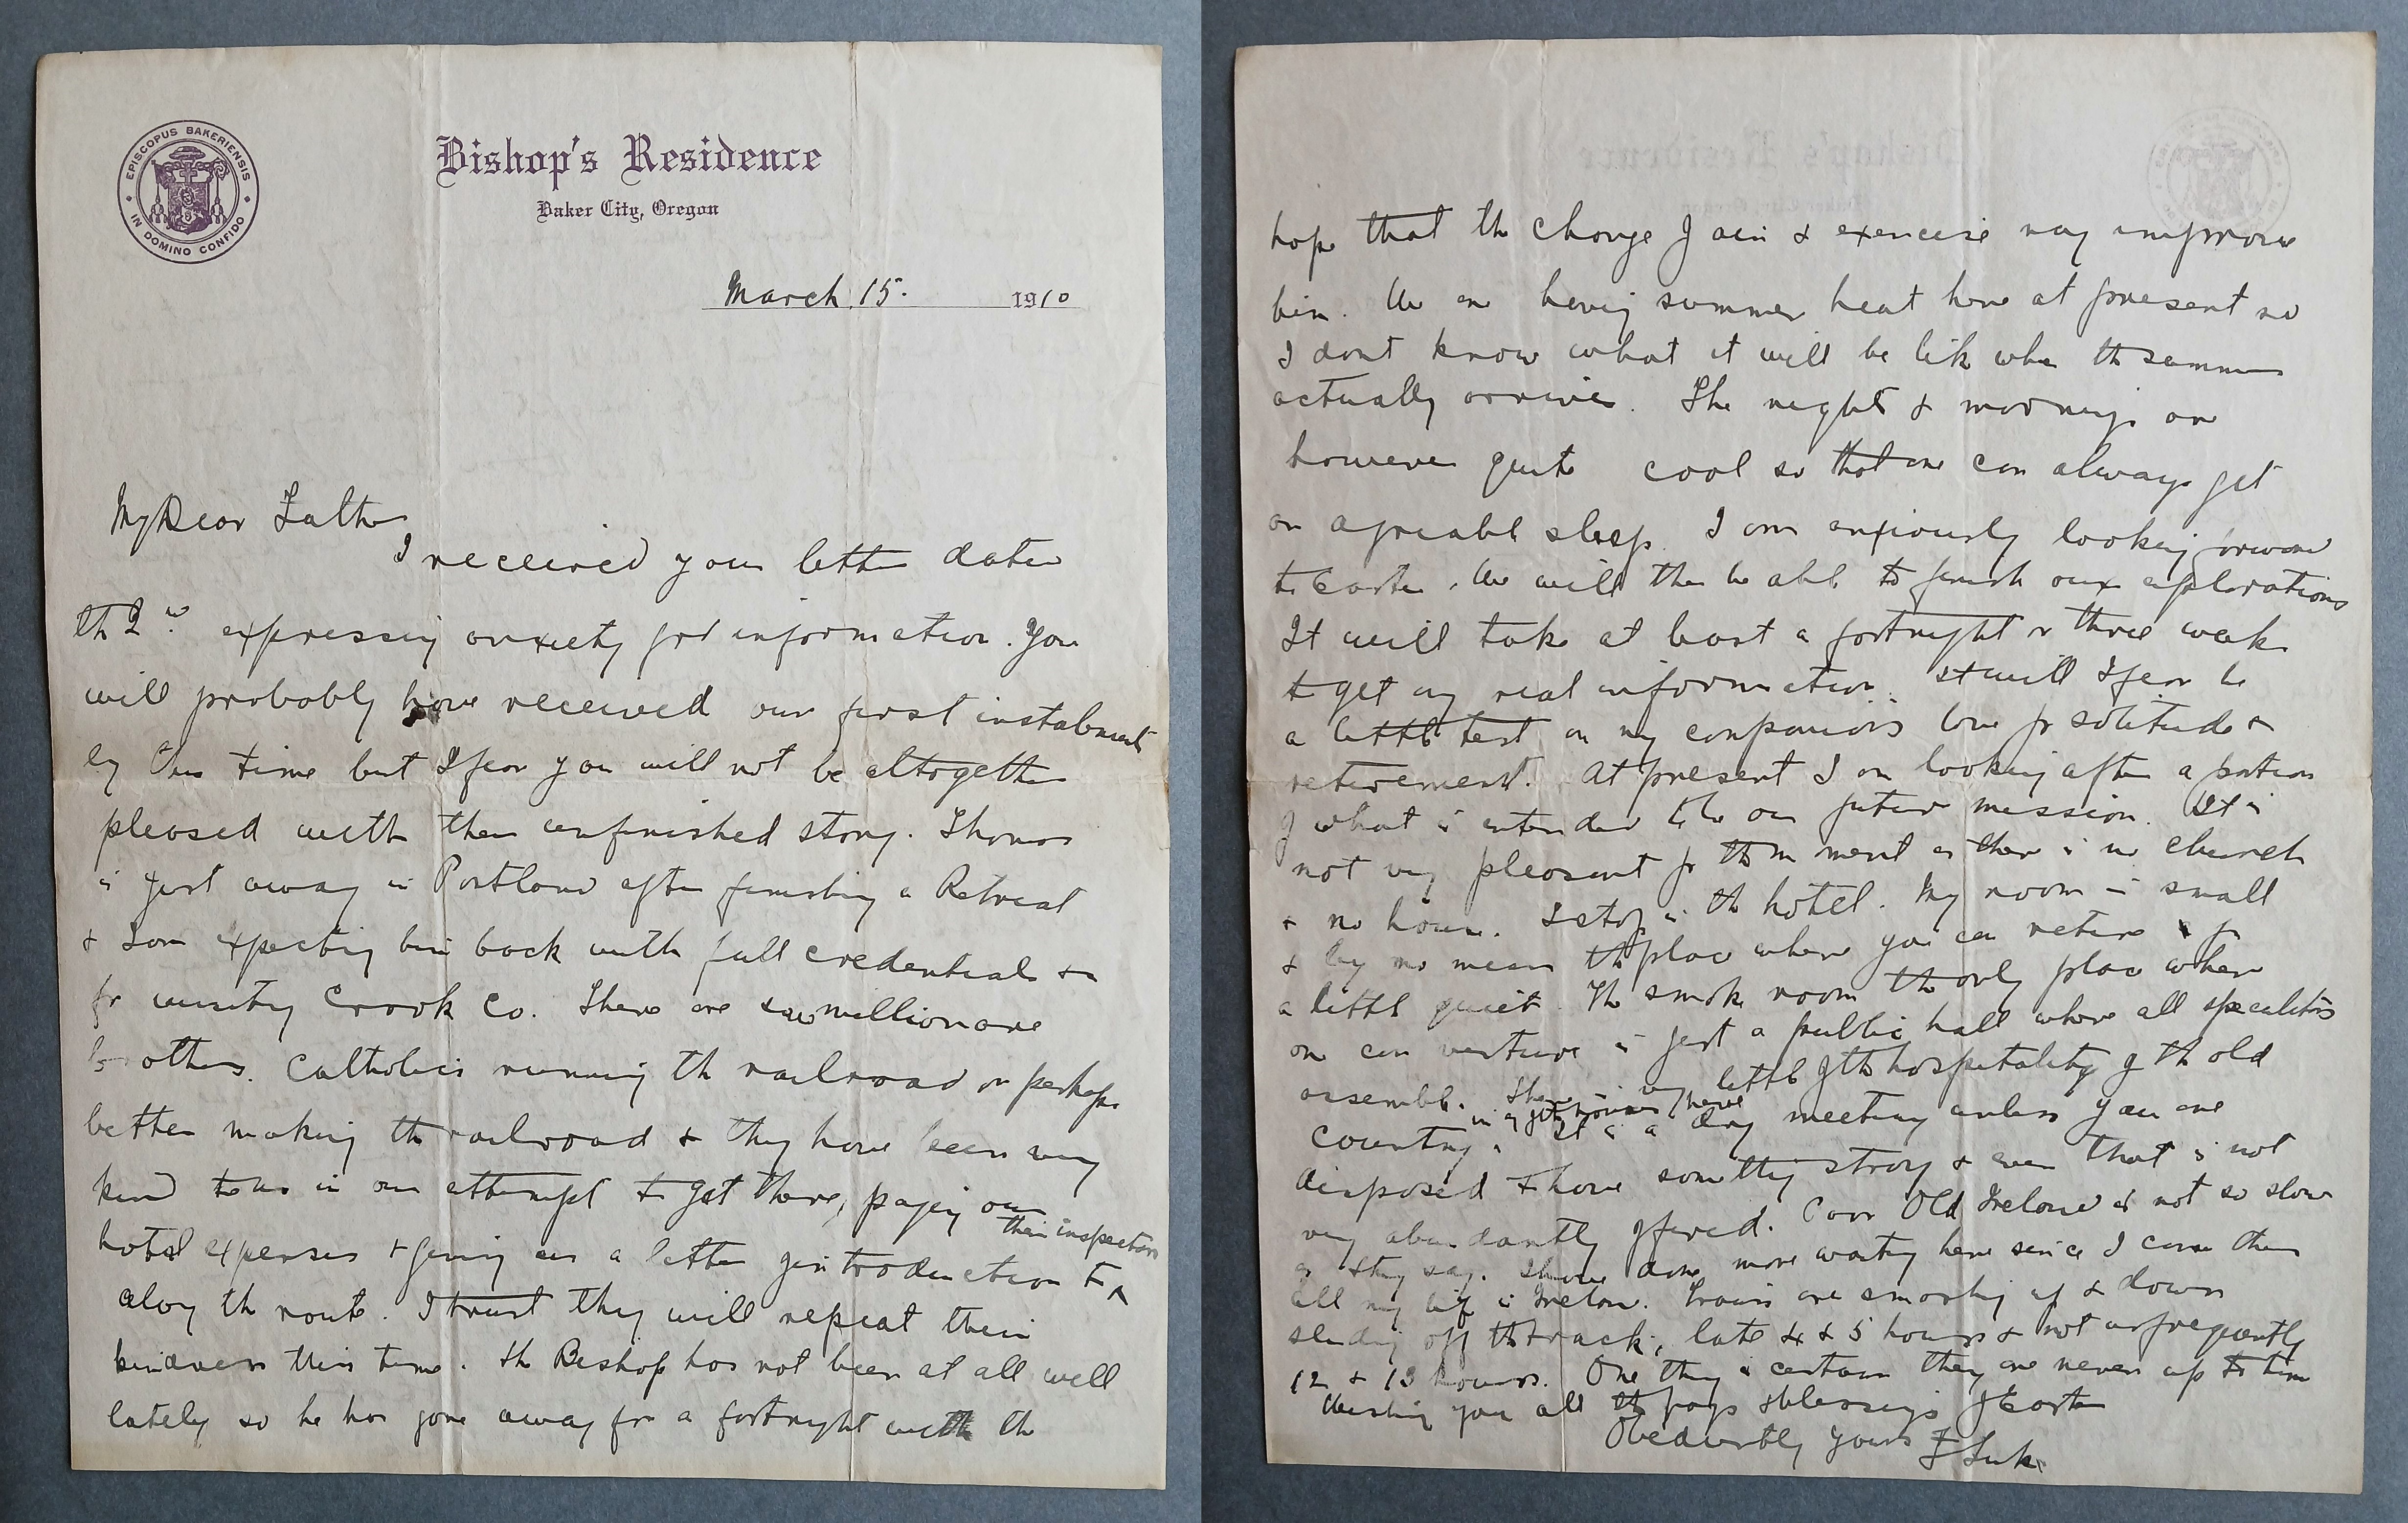 EPISCOPUS BAKERIENSIS
IN DOMINO CONFIDO
Bishop's Residence
Baker City, Oregon
March 15. 1910
My Dear Father
I received your letter dated
the 2nd. expressing anxiety for information. You
will probably have received our first instalment
by this time but I fear you will not be altogether
pleased with the unfinished story. Thomas
is just away in Portland after finishing a Retreat
& I am expecting him back with full credentials &c
for visiting Crook Co. There are millionare
brothers. Catholics running the railroad or perhaps
better making the railroad & they have been very
kind to us in our attempt to get there, paying our
hotel expenses & giving us a letter of introduction to their inspectors
along the route. I trust they will repeat their
kindness this time. The Bishop has not been at all well
lately so he has gone away for a fortnight with the
hope that the change of air & exercise may improve
him. We are having summer heat here at present so
I dont know what it will be like when the summer
actually arrives. The nights & mornings are
however quite cool so that one can always get
an agreable sleep. I am anxiously looking forward
to Easter. We will then be able to finish our explorations
It will take at least a fortnight or three weeks
to get any real information. It will I fear be
a little test on my companion's love for solitude &
retirement. At present I am looking after a portion
of what is intended to be our future mission. It is
not very pleasant for the moment as there is no church
& no house. I stop in the hotel. My room is small
& by no means the place where you can retire for
a little quiet. The smoke room the only place where
one can venture is just a public hall where all speculators
assemble. There is very little of the hospitality of the old
country in any of the houses here. It is a dry meeting unless you are
disposed to have something strong & even that is not
very abundantly offered. Poor Old Ireland is not so slow
as they say. I have done more waiting here since I came than
all my life in Ireland. Trains are smashing up & down
sliding off the track, late 4 & 5 hours & not unfrequently
12 & 13 hours. One thing is certain they are never up to time
Wishing you all the joys & blessings of Easter
Obediently yours F Luke